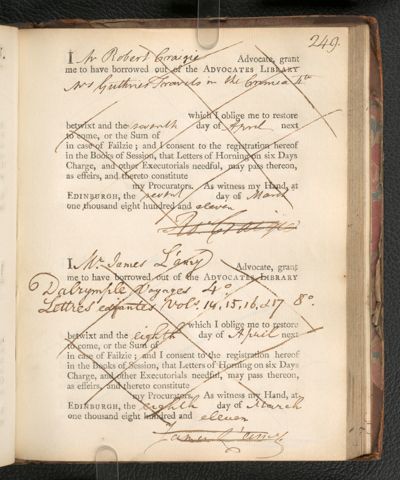 249.
I Mr Robert Craigie Advocate, grant
me to have borrowed out of the ADVOCATES LIBRARY
Mrs Guthries Travels in the Crimea 4to
which I oblige me to restore
betwixt and the seventh day of April next
to come, or the Sum of
in case of Failzie; and I consent to the registration hereof
in the Books of Session, that Letters of Horning on six Days
Charge, and other Executorials needful, may pass thereon,
as effeirs, and thereto constitute
my Procurators. As witness my Hand, at
EDINBURGH, the day of March
one thousand eight hundred and eleven
Ro Craigie
I Mr. James L'Amy Advocate, grant
me to have borrowed out of the ADVOCATES LIBRARY
Dalrymple Voyages 4o.
Lettres edifiantes, Vols. 14, 15, 16, & 17 8o.
which I oblige me to restore
betwixt and the eighth day of April next
to come, or the Sum of
in case of Failzie; and I consent to the registration hereof
in the Books of Session, that Letters of Horning on six Days
Charge, and other Executorials needful, may pass thereon,
as effeirs, and thereto constitute
my Procurators. As witness my Hand, at
EDINBURGH, the eighth day of March
one thousand eight hundred and eleven
James L'Amy